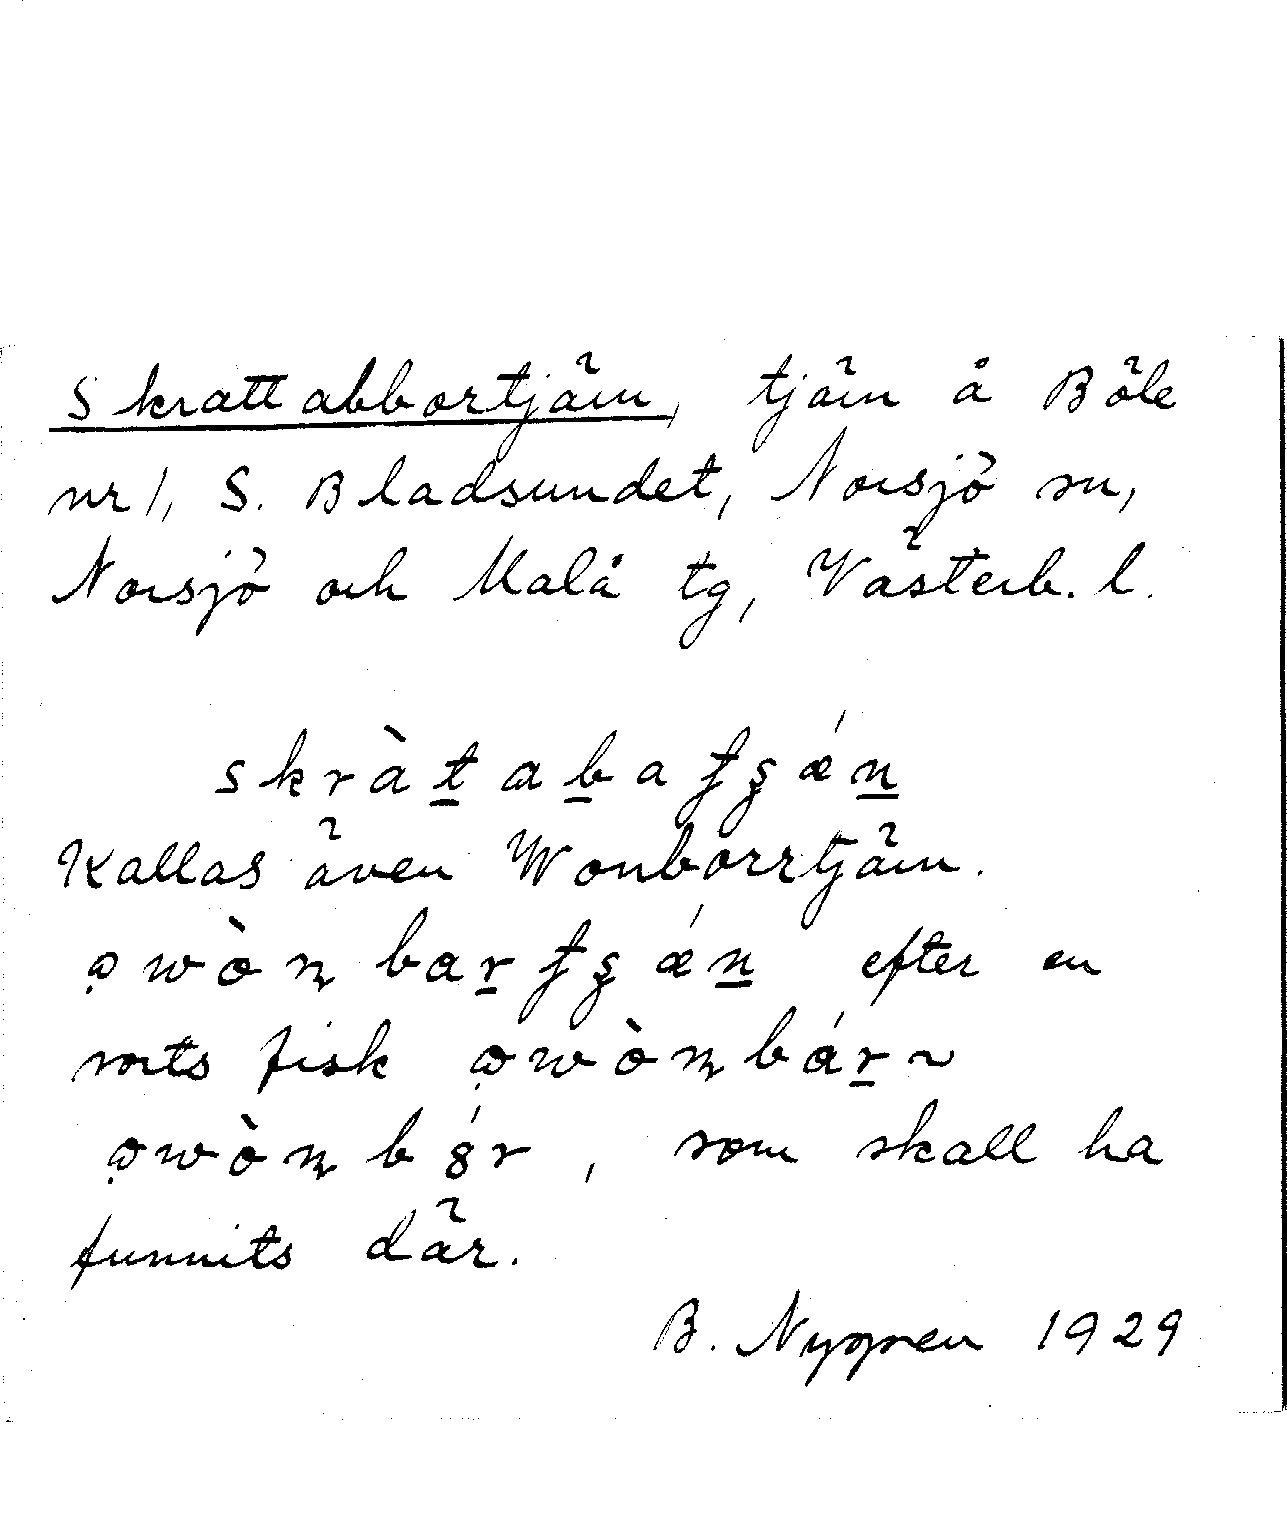 Skrattabbortjärn, tjärn å Böle
nr 1, S. Bladsundet, Norsjö sn,
Norsjö och Malå tg, Västerb. l.
skràt̲ab̲a
Kallas även Wonborrtjärn.
efter en
sorts fisk
, som skall ha
funnits där.
B. Nygren 1929